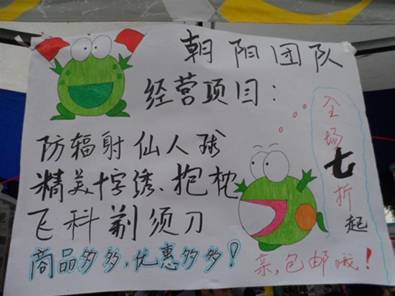 朝阳团队
经营项目:
防辐射仙人球
精美十字绣、抱枕
飞科剃须刀
商品多多,优惠多多!
全场七折起
亲,包邮哦!